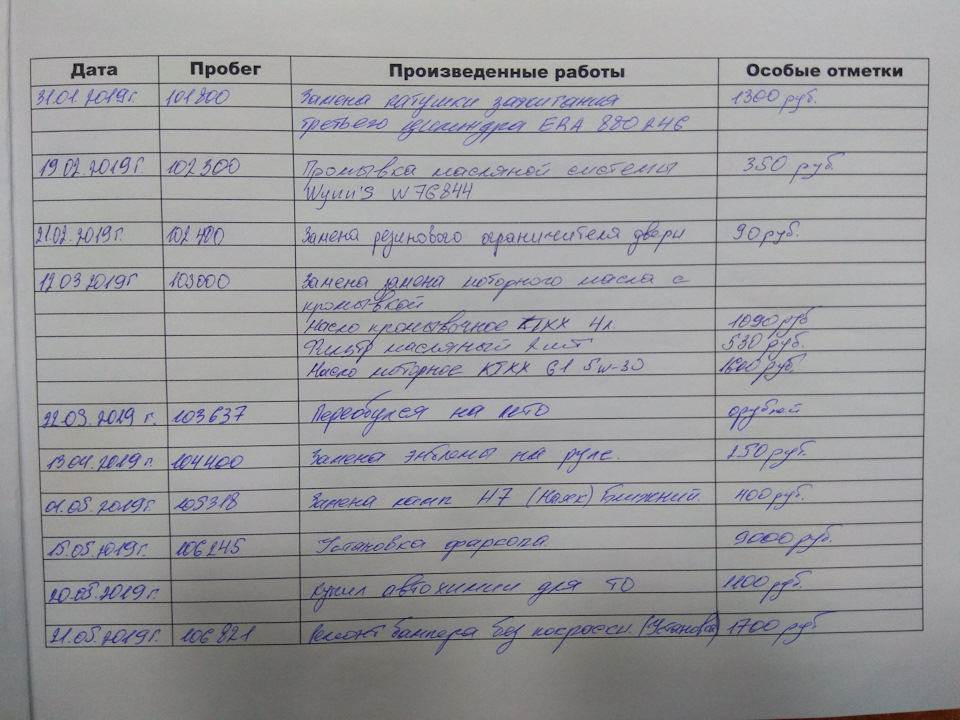 Дата Пробег Произведенные работы Особые отметки
31.01.2019г. 101800 Замена катушки зажигания 1300 руб.
третьего цилиндра ERA 880246
19.02.2019г. 102300 Промывка масляной системы 350 руб.
Wynn's W76844
21.02.2019г. 102400 Замена резинового ограничителя двери 90 руб.
12.03.2019г 103000 Замена замена моторного масла с
промывкой
Масло промывочное КIXX 4л. 1090 руб
Фильтр масляный 2 шт 530 руб.
Масло моторное KIXX G1 5w-30 руб.
22.03.2019 г. 103637 Переобулся на лето 0 рублей
13.04.2019 г. 104400 Замена эмблемы на руле. 250 руб.
01.05.2019г. 105318 Замена ламп H7 (Маяк) ближний 400 руб.
15.05.2019г. 106245 Установка фаркопа 9000 руб.
20.05.2019г. Купил автохимии для ТО руб.
21.05.2019г. 106821 Ремонт бампера без покраски. (Установка) 1700 руб